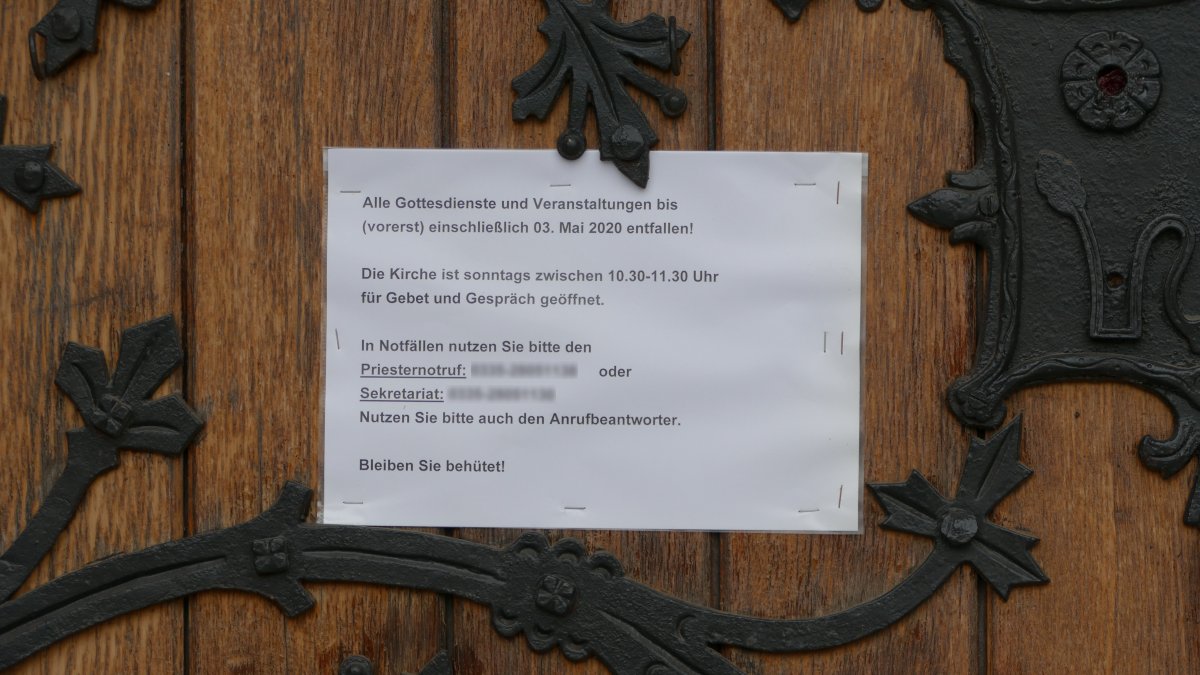 Alle Gottesdienste und Veranstaltungen bis
(vorerst) einschließlich 03. Mai 2020 entfallen!
Die Kirche ist sonntags zwischen 10.30-11.30 Uhr
für Gebet und Gespräch geöffnet.
In Notfällen nutzen Sie bitte den
Priesternotruf: oder
Sekretariat:
Nutzen Sie bitte auch den Anrufbeantworter.
Bleiben Sie behütet!